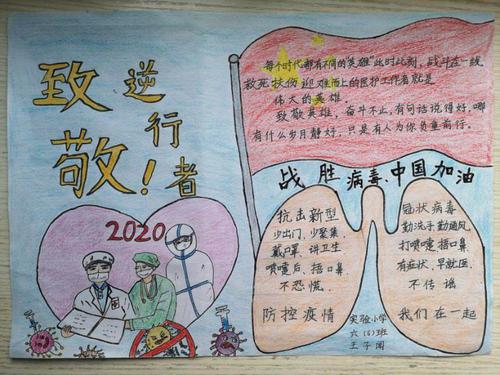 致敬！
逆行者
2020
"每个时代都有不同的英雄"此时此刻，战斗在一线，
救死扶伤迎难而上的医护工作者就是
伟大的英雄。
致敬英雄，奋斗不止，有句话说得好，哪
有什么岁月静好，只是有人为你负重前行。
战胜病毒、中国加油
抗击新型
少出门、少聚集、
戴口罩、讲卫生
喷嚏后、捂口鼻
不恐慌、
防控疫情
冠状病毒
勤洗手勤通风
打喷嚏捂口鼻
有症状、早就医、
不传谣
我们在一起
实验小学
六（6）班